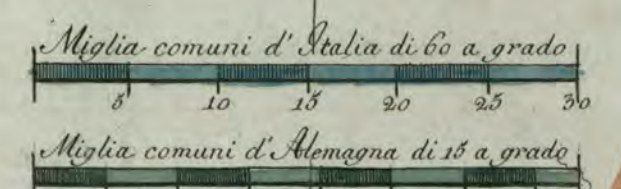 Miglia comuni d' Italia di 60 a grado
5 10 15 20 25 30
Miglia comuni d' Alemagna di 15 a grado